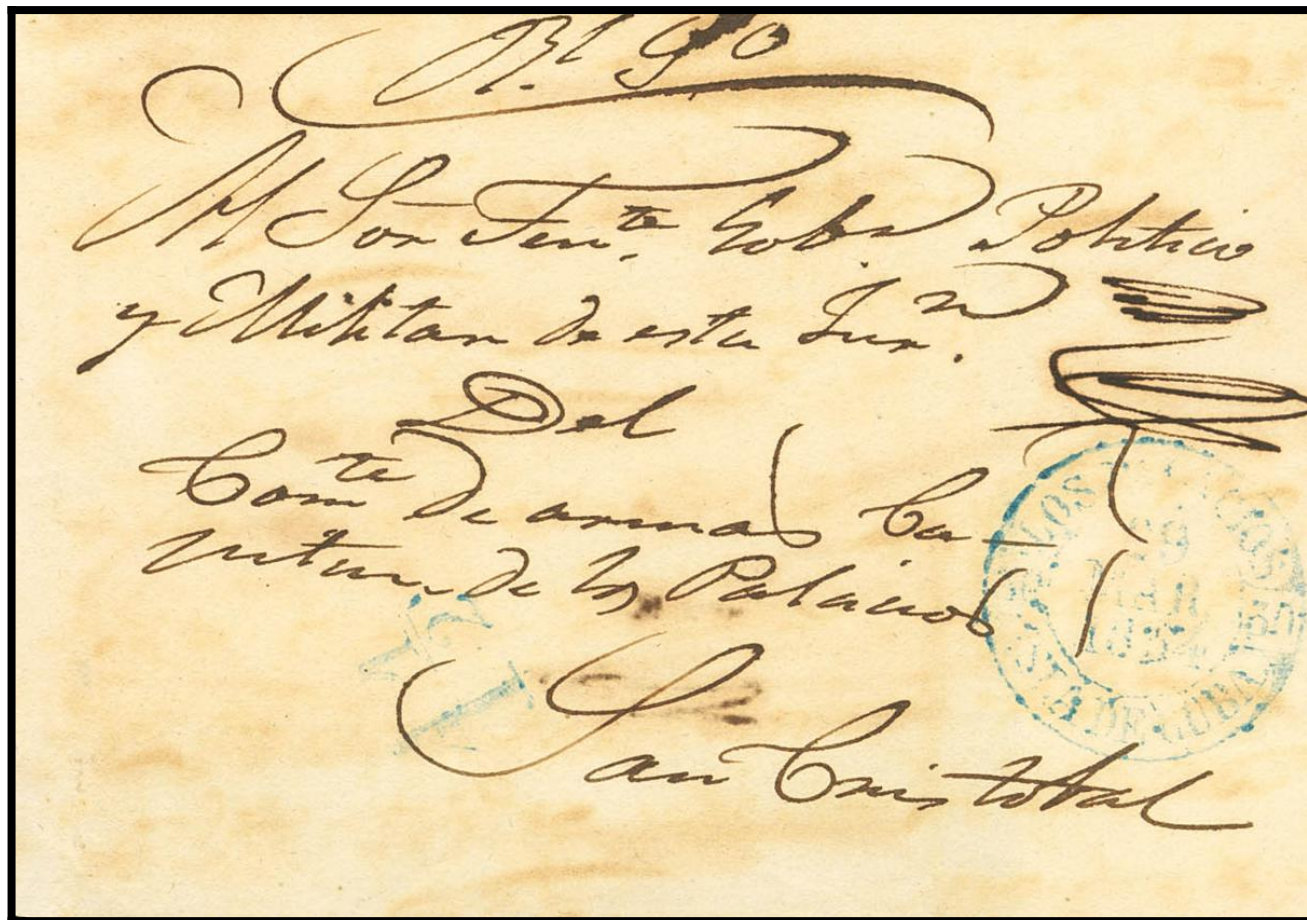 Rl So
Al Sor Tente. Gobr Politico
y Militar de esta Jurn.
Del
Comte De armas Ca-
pitan de los Palacios
San Cristobal
LOS PALACIOS
29
MAR
1854
ISLA DE CUBA